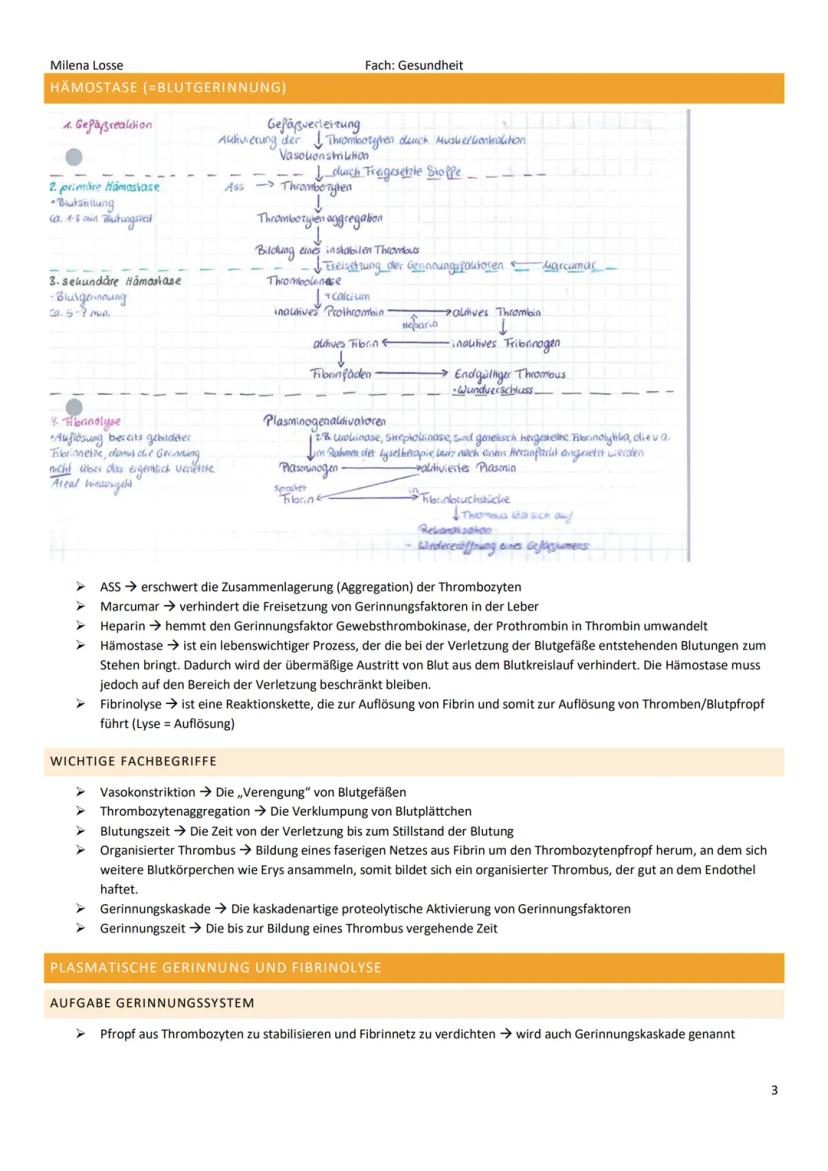 Milena Losse Fach: Gesundheit
HÄMOSTASE (=BLUTGERINNUNG)
1. Gefäßreaktion
Gefäßverletzung
Aktivierung der Thrombozyten durch Muskelkontraktion
Vasokonstriktion
durch Freigesetzte Stoffe
2. primäre Hämostase
Ass → Thrombozyten
• Blutstillung
ca. 1-3 min Blutungszeit
Thrombozytenaggregation
Bildung eines instabilen Thrombus
Freisetzung der Gerinnungsfaktoren ← Marcumar
3. sekundäre Hämostase
Thrombokinase
- Blutgerinnung
+ calcium
ca. 5-7 min.
inaktives Prothrombin → aktives Thrombin
Heparin
aktives Fibrin ← inaktives Fribrinogen
Fibrinfäden → Endgültiger Thrombus
• Wundverschluss
4. Fibrinolyse
Plasminogenaktivatoren
• Auflösung bereits gebildeter
Fibrinnetze, damit die Gerinnung
nicht über das eigentlich verletzte
Areal hinausgeht
z.B. Urokinase, Streptokinase, sind genetisch hergestellte Fibrinolytika, die v.a.
im Rahmen der Lysetherapie kurz nach einem Herzinfarkt eingesetzt werden
Plasminogen → aktiviertes Plasmin
spaltet
Fibrin in → Fibrinbruchstücke
Thrombus löst sich auf
Rekanalisation
- Wiedereröffnung eines Gefäßlumens
➢ ASS → erschwert die Zusammenlagerung (Aggregation) der Thrombozyten
➢ Marcumar → verhindert die Freisetzung von Gerinnungsfaktoren in der Leber
➢ Heparin → hemmt den Gerinnungsfaktor Gewebsthrombokinase, der Prothrombin in Thrombin umwandelt
➢ Hämostase → ist ein lebenswichtiger Prozess, der die bei der Verletzung der Blutgefäße entstehenden Blutungen zum
Stehen bringt. Dadurch wird der übermäßige Austritt von Blut aus dem Blutkreislauf verhindert. Die Hämostase muss
jedoch auf den Bereich der Verletzung beschränkt bleiben.
➢ Fibrinolyse → ist eine Reaktionskette, die zur Auflösung von Fibrin und somit zur Auflösung von Thromben/Blutpfropf
führt (Lyse = Auflösung)
WICHTIGE FACHBEGRIFFE
➢ Vasokonstriktion → Die „Verengung“ von Blutgefäßen
➢ Thrombozytenaggregation → Die Verklumpung von Blutplättchen
➢ Blutungszeit → Die Zeit von der Verletzung bis zum Stillstand der Blutung
➢ Organisierter Thrombus → Bildung eines faserigen Netzes aus Fibrin um den Thrombozytenpfropf herum, an dem sich
weitere Blutkörperchen wie Erys ansammeln, somit bildet sich ein organisierter Thrombus, der gut an dem Endothel
haftet.
➢ Gerinnungskaskade → Die kaskadenartige proteolytische Aktivierung von Gerinnungsfaktoren
➢ Gerinnungszeit → Die bis zur Bildung eines Thrombus vergehende Zeit
PLASMATISCHE GERINNUNG UND FIBRINOLYSE
AUFGABE GERINNUNGSSYSTEM
➢ Pfropf aus Thrombozyten zu stabilisieren und Fibrinnetz zu verdichten → wird auch Gerinnungskaskade genannt
3